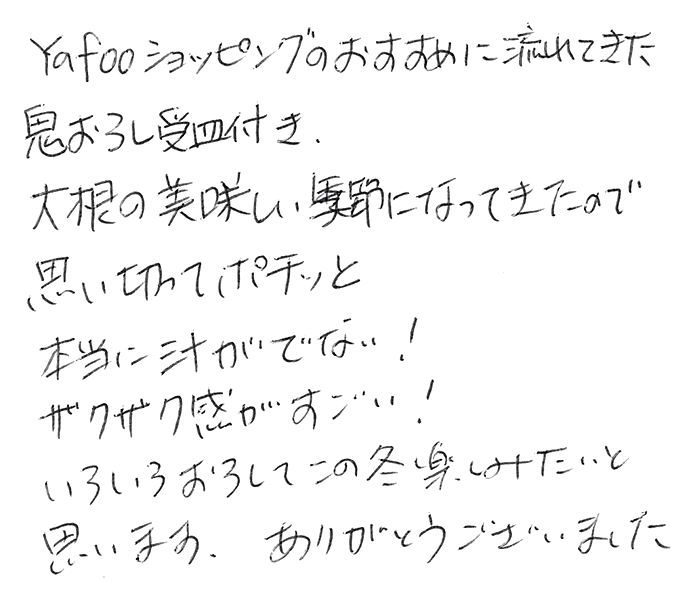 Yafooショッピングのおすすめに流れてきた
鬼おろし受皿付き.
大根の美味しい季節になってきたので
思い切ってポチッと
本当に汁がでない!
ザクザク感がすごい!
いろいろおろしてこの冬楽しみたいと
思います. ありがとうございました